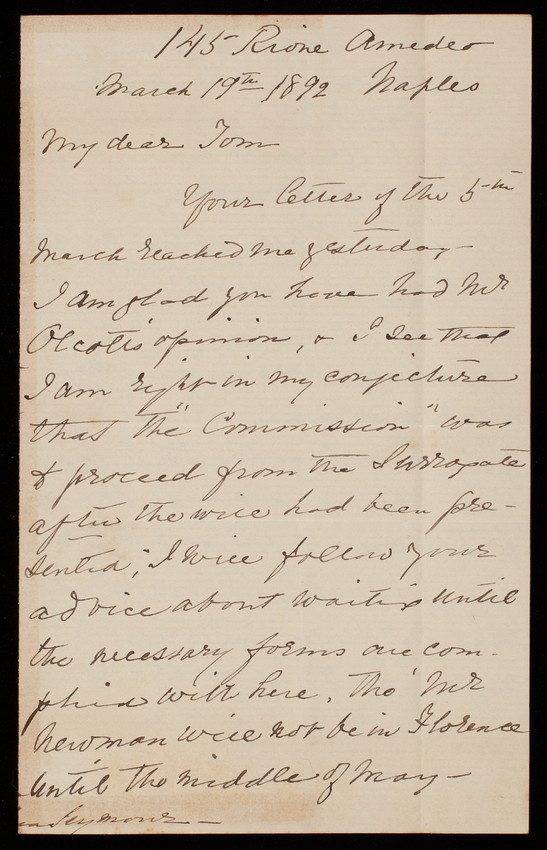 145 Rione Amedeo
March 19th 1892 Naples
My dear Tom
Your letter of the 5th
March reached me yesterday—
I am glad you have had Mr
Olcott's opinion, & I see that
I am right in my conjecture
that the "Commission" was
to proceed from the Surrogate
after the will had been pre-
sented; I will follow your
advice about waiting until
the necessary forms are com-
plied with here, tho' Mr
Newman will not be in Florence
until the middle of May—
Seymour—